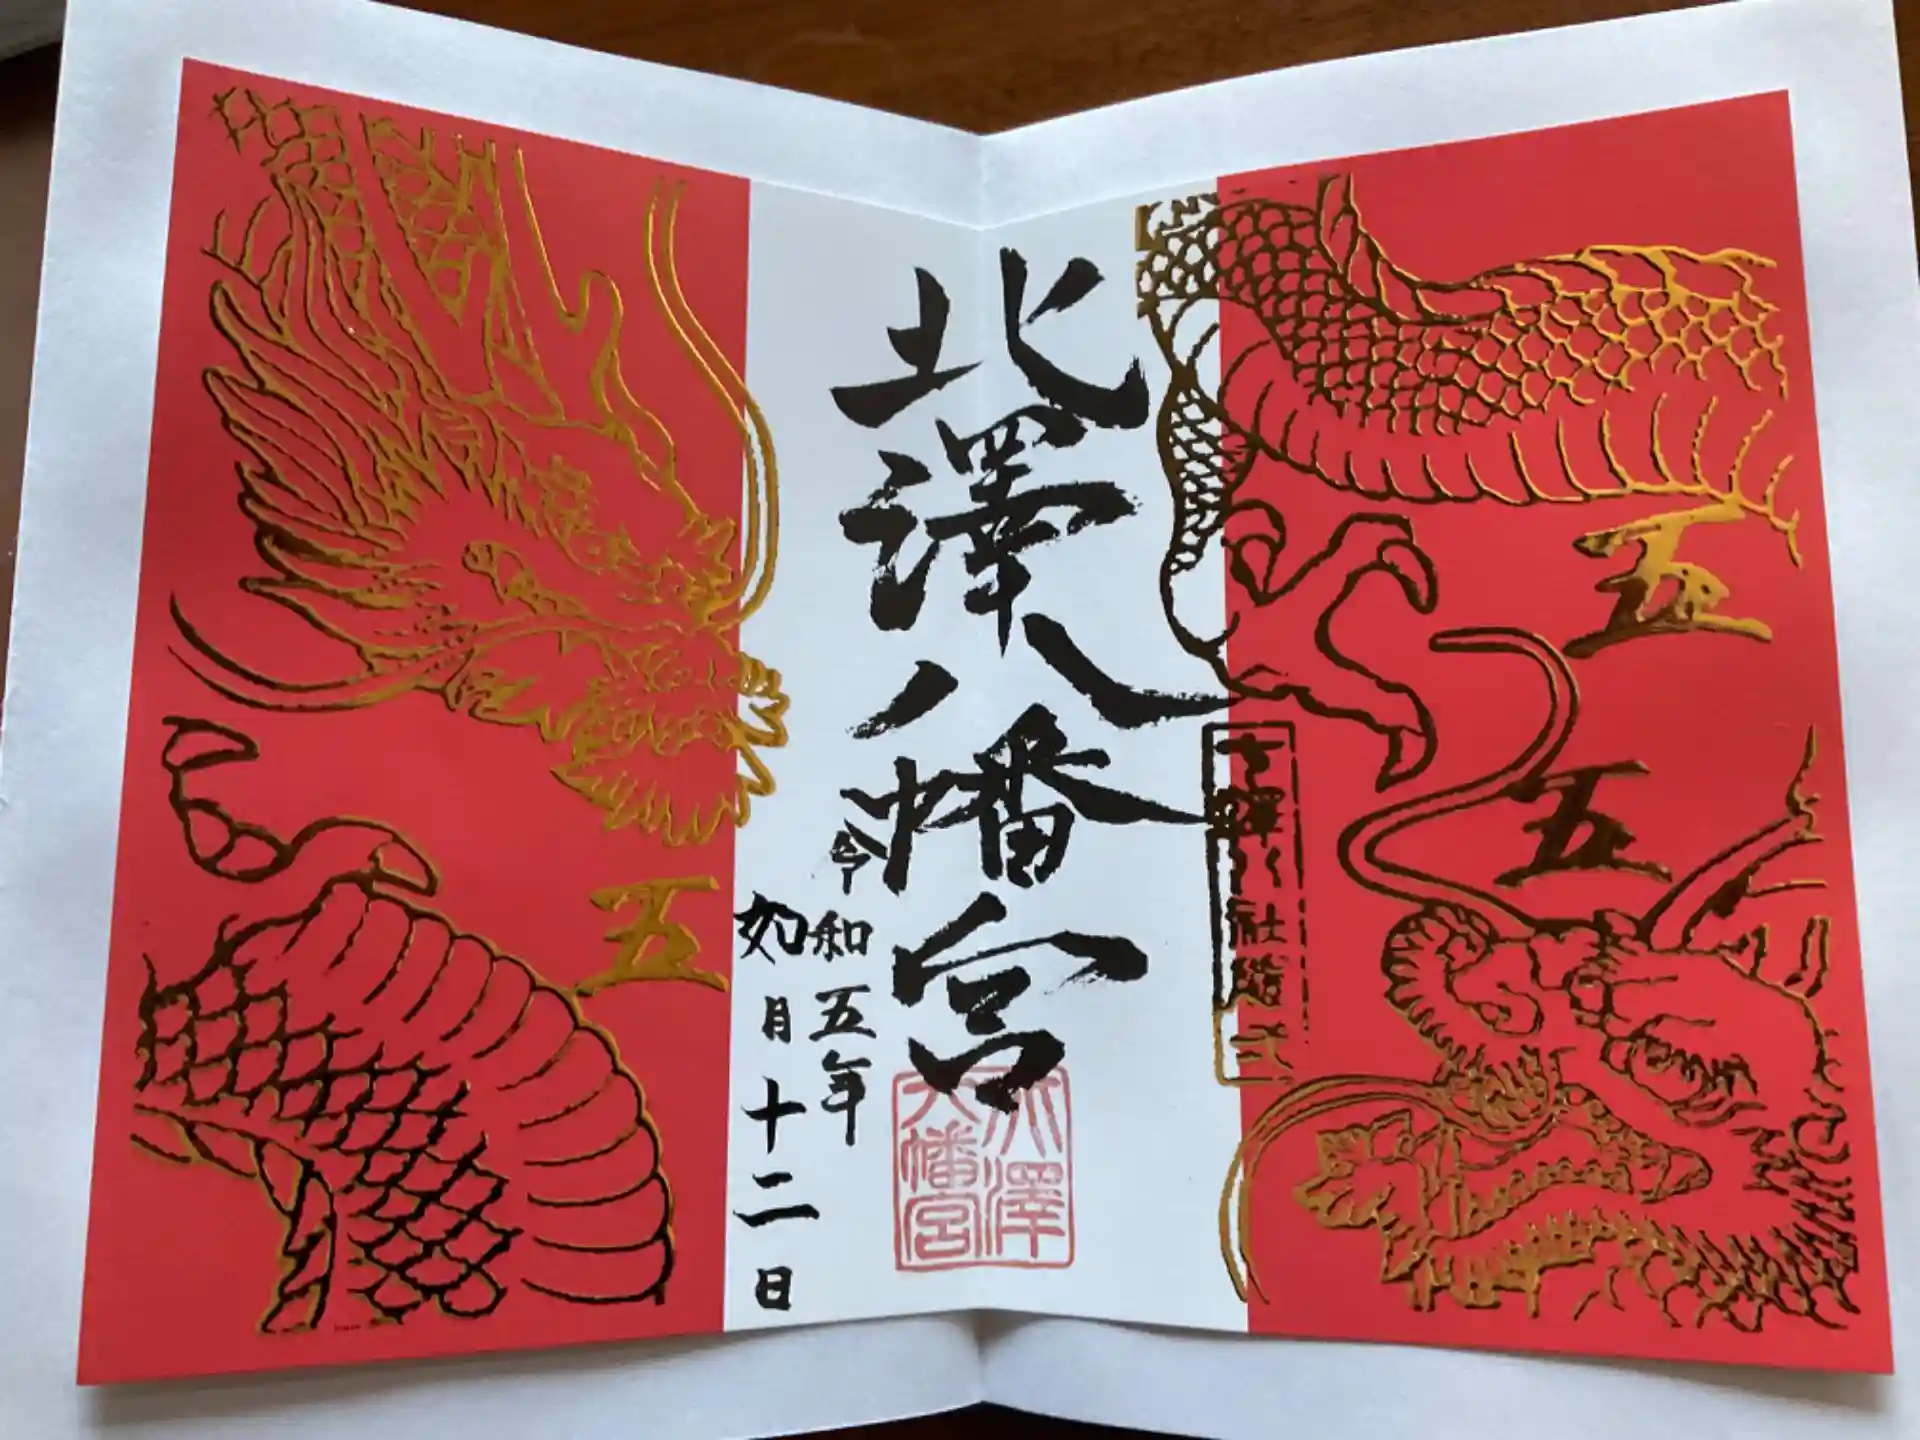 五
五
七澤八社
北澤八幡宮
北澤
八幡宮
令和五年
如月十二日
五